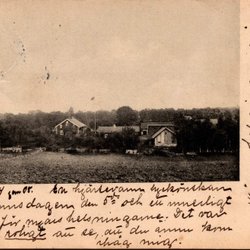 En hjärtevarm lyckönskan
dagen den 5te och ett innerligt
för Det var
roligt att se, att du ännu kom
ihåg mig.